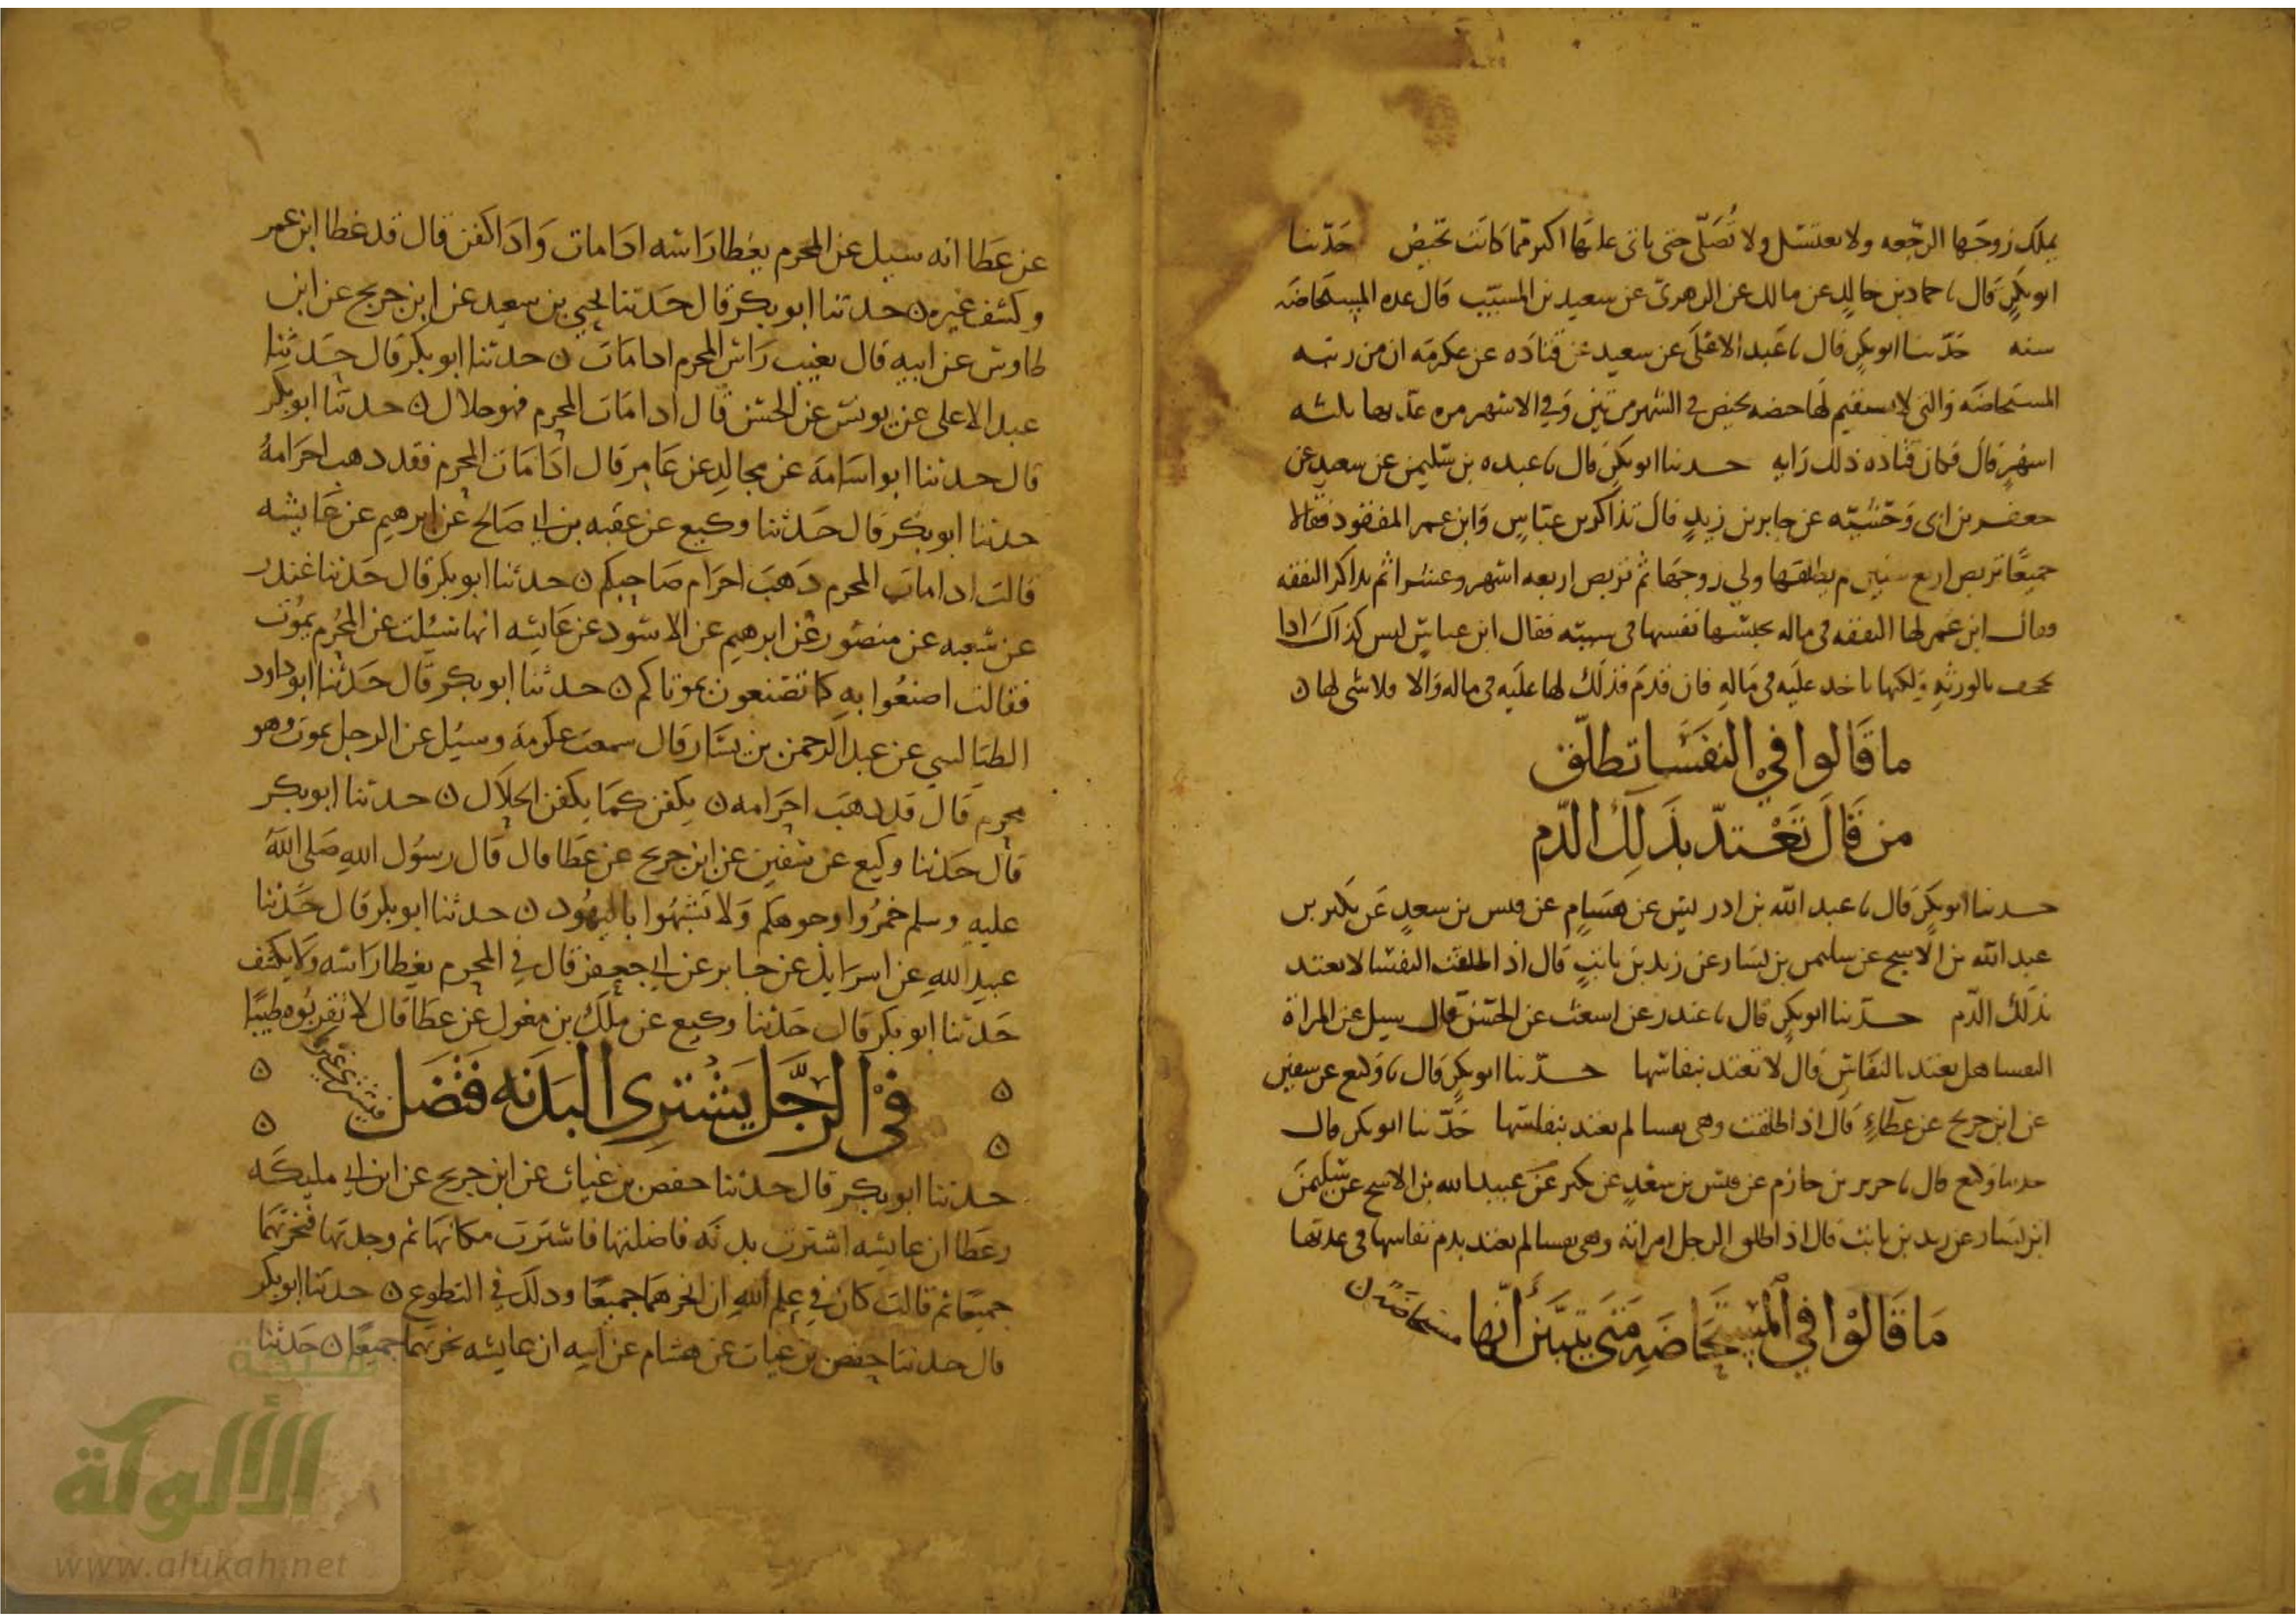 يملك زوجها الرجعه ولا تعتسل ولا تُصَلّى حتى ياتى عليها اكبر مما كانت تحيض حدّثنا
ابو بكرٍ قال نا حماد بن خالدٍ عن مالك عن الزهرى عن سعيد بن المسيّب قال عده المستحاضه
سنه حدّثنا ابو بكرٍ قال نا عبد الاعلى عن سعيد عن قتادَه عن عكرمَه ان من ريبه
المستحاضَه والتى لا يستقيم لها حيضه تحيض فى الشهر مرتين وفي الاشهر مره عدّتها ثلثه
اشهرٍ قال فكان قتاده ذلك رَايه حدثنا ابو بكرٍ قال نا عبده بن سليمن عن سعيدٍ عن
جعفر بن ابى وحشيّه عن جابر بن زيدٍ قال تذاكر بن عبّاسٍ وابن عمر المفقود فقالا
جميعًا تربص اربع سنين م يطلقها ولي زوجها ثم تربص اربعه اشهر وعشرا ثم تذاكر النفقه
وقال ابن عمر لها النفقه فى ماله بحبسها نفسها فى سببه فقال ابن عباس ليس كذاك اذا
يجحف بالورثهِ ولكنها تاخد عليَه فى مَالهِ فان قدمَ فذلك لها عليَه فى ماله وَالا فلا شى لها ن
ما قالوا في النفَسَا تطلّق
من قَالَ تَعْتدّ بذَلِكَ الدّم
حدثنا ابو بكرٍ قال نا عبد الله بن ادريس عن هشامٍ عن قيس بن سعدٍ عن بكير بن
عبد الله بن الاشج عن سليمن بن يسار عن زيد بن ثابتٍ قال اذا طلقت النفسا لا تعتد
بذلك الدّم حدّثنا ابو بكرٍ قال نا غندر عن اشعث عن الحسن قال سيل عن المراة
النفسا هل تعتد بالنفاسِ قال لا تعتد بنفاسها حدّثنا ابو بكرٍ قال نا وكيع عن سفين
عن ابن جريج عن عطاءٍ قال اذا طلقت وهى نفسا لم تعتد بنفاسها حدّثنا ابو بكر قال
حدثنا وكيع قال نا جرير بن حازم عن قيس بن سعْدٍ عن بكير عَن عبيد الله بن الاشج عن سليمن
ابن يسار عن زيد بن ثابت قال اذا طلق الرجل امراته وهى نفسا لم تعتد بدم نفاسها فى عدتها
مَا قَالوْا في المستحَاضَهِ مَتى يتبَيّن أنّها مستحاضَه ن
عن عَطَا انه سيل عن المحرم يغطا رَاسه ادَا مات وَادَا كفن قال قد غطا ابن عمر
وكشف غيره ن حدثنا ابو بكر قال حَدثنا يحيي بن سعيد عن ابن جريج عن ابن
طاوس عن ابيه قال يغيب رَاس المحرم ادا مَات ن حدثنا ابو بكر قال حَدثنا
عبد الاعلى عن يونس عن الحسن قال ادا مَات المحرم فهو حلال ن حدثنا ابو بكر
قال حدثنا ابو اسَامهَ عن مجالدٍ عن عَامر قال ادَا مَات المحرم فقد دهب احرَامهُ
حدثنا ابو بكر قال حَدثنا وكيع عن عقبه بن ابي صَالح عن ابرهيم عن عَايشه
قالت ادا مات المحرم دَهبَ احرَام صَاحبكم ن حدثنا ابو بكر قال حَدثنا غندر
عن شعبه عن منصور عن ابرهيم عن الاسود عن عَايشه انها سُيلت عن المحرُم يموُت
فقالت اصنعُوا بهِ كما تصَنعون بموتاكم ن حدثنا ابو بكر قال حَدثنا ابو داود
الطيَالسي عن عبد الرحمن بن يسَار قال سمعت عكرمَه وسيُل عن الرجل يموت وهو
محرم قَال قد دهبَ احرَامه ن يكفن كمَا يكفن الحلاَل ن حدثنا ابو بكر
قال حَدثنا وكيع عن سفين عن ابن جريج عن عطَا قال قال رسوُل اللهِ صَلى اللهُ
عليهِ وسلم خمرُوا وجوهكم وَلا تشبهُوا باليهوُد ن حدثنا ابو بكر قال حَدثنا
عبيد اللهِ عن اسرَايل عن جَابر عن ابي جعفر قال في المحرم يغطا رَاسه وَلا يكشف
حَدثنا ابو بكر قال حَدثنا وكيع عن ملك بن مغول عن عطَا قال لا تقربُوه طيبًا
في الرجُل يَشترِى البَدَنه فتَضل فيشترى غيرها
حدثنا ابو بكر قال حدثنا حفص بن غياث عن ابن جريج عن ابن ابي مليكَه
وعَطا ان عايشه اشترت بدنَه فاضلتها فاشترَت مكانهَا ثم وجدتها فنحرَتهما
جميعًا ثم قالت كان في علم اللهِ ان انحرهمَا جميعًا ودلكَ في التطوع ن حدثنا ابو بكر
قال حدثنا حفص بن غياث عن هشام عن ابيه ان عايشه نحرتهما جميعًا ن حَدثنا
الألوكة
www.alukah.net